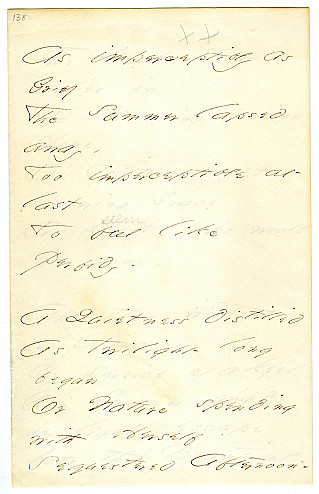 138
x x
As imperceptibly as
Grief
The Summer lapsed
away.
Too imperceptible at
last
seem
To feel like
Perfidy.
A Quietness distilled
As Twilight long
begun
Or Nature spending
with Herself
Sequestered Afternoon-